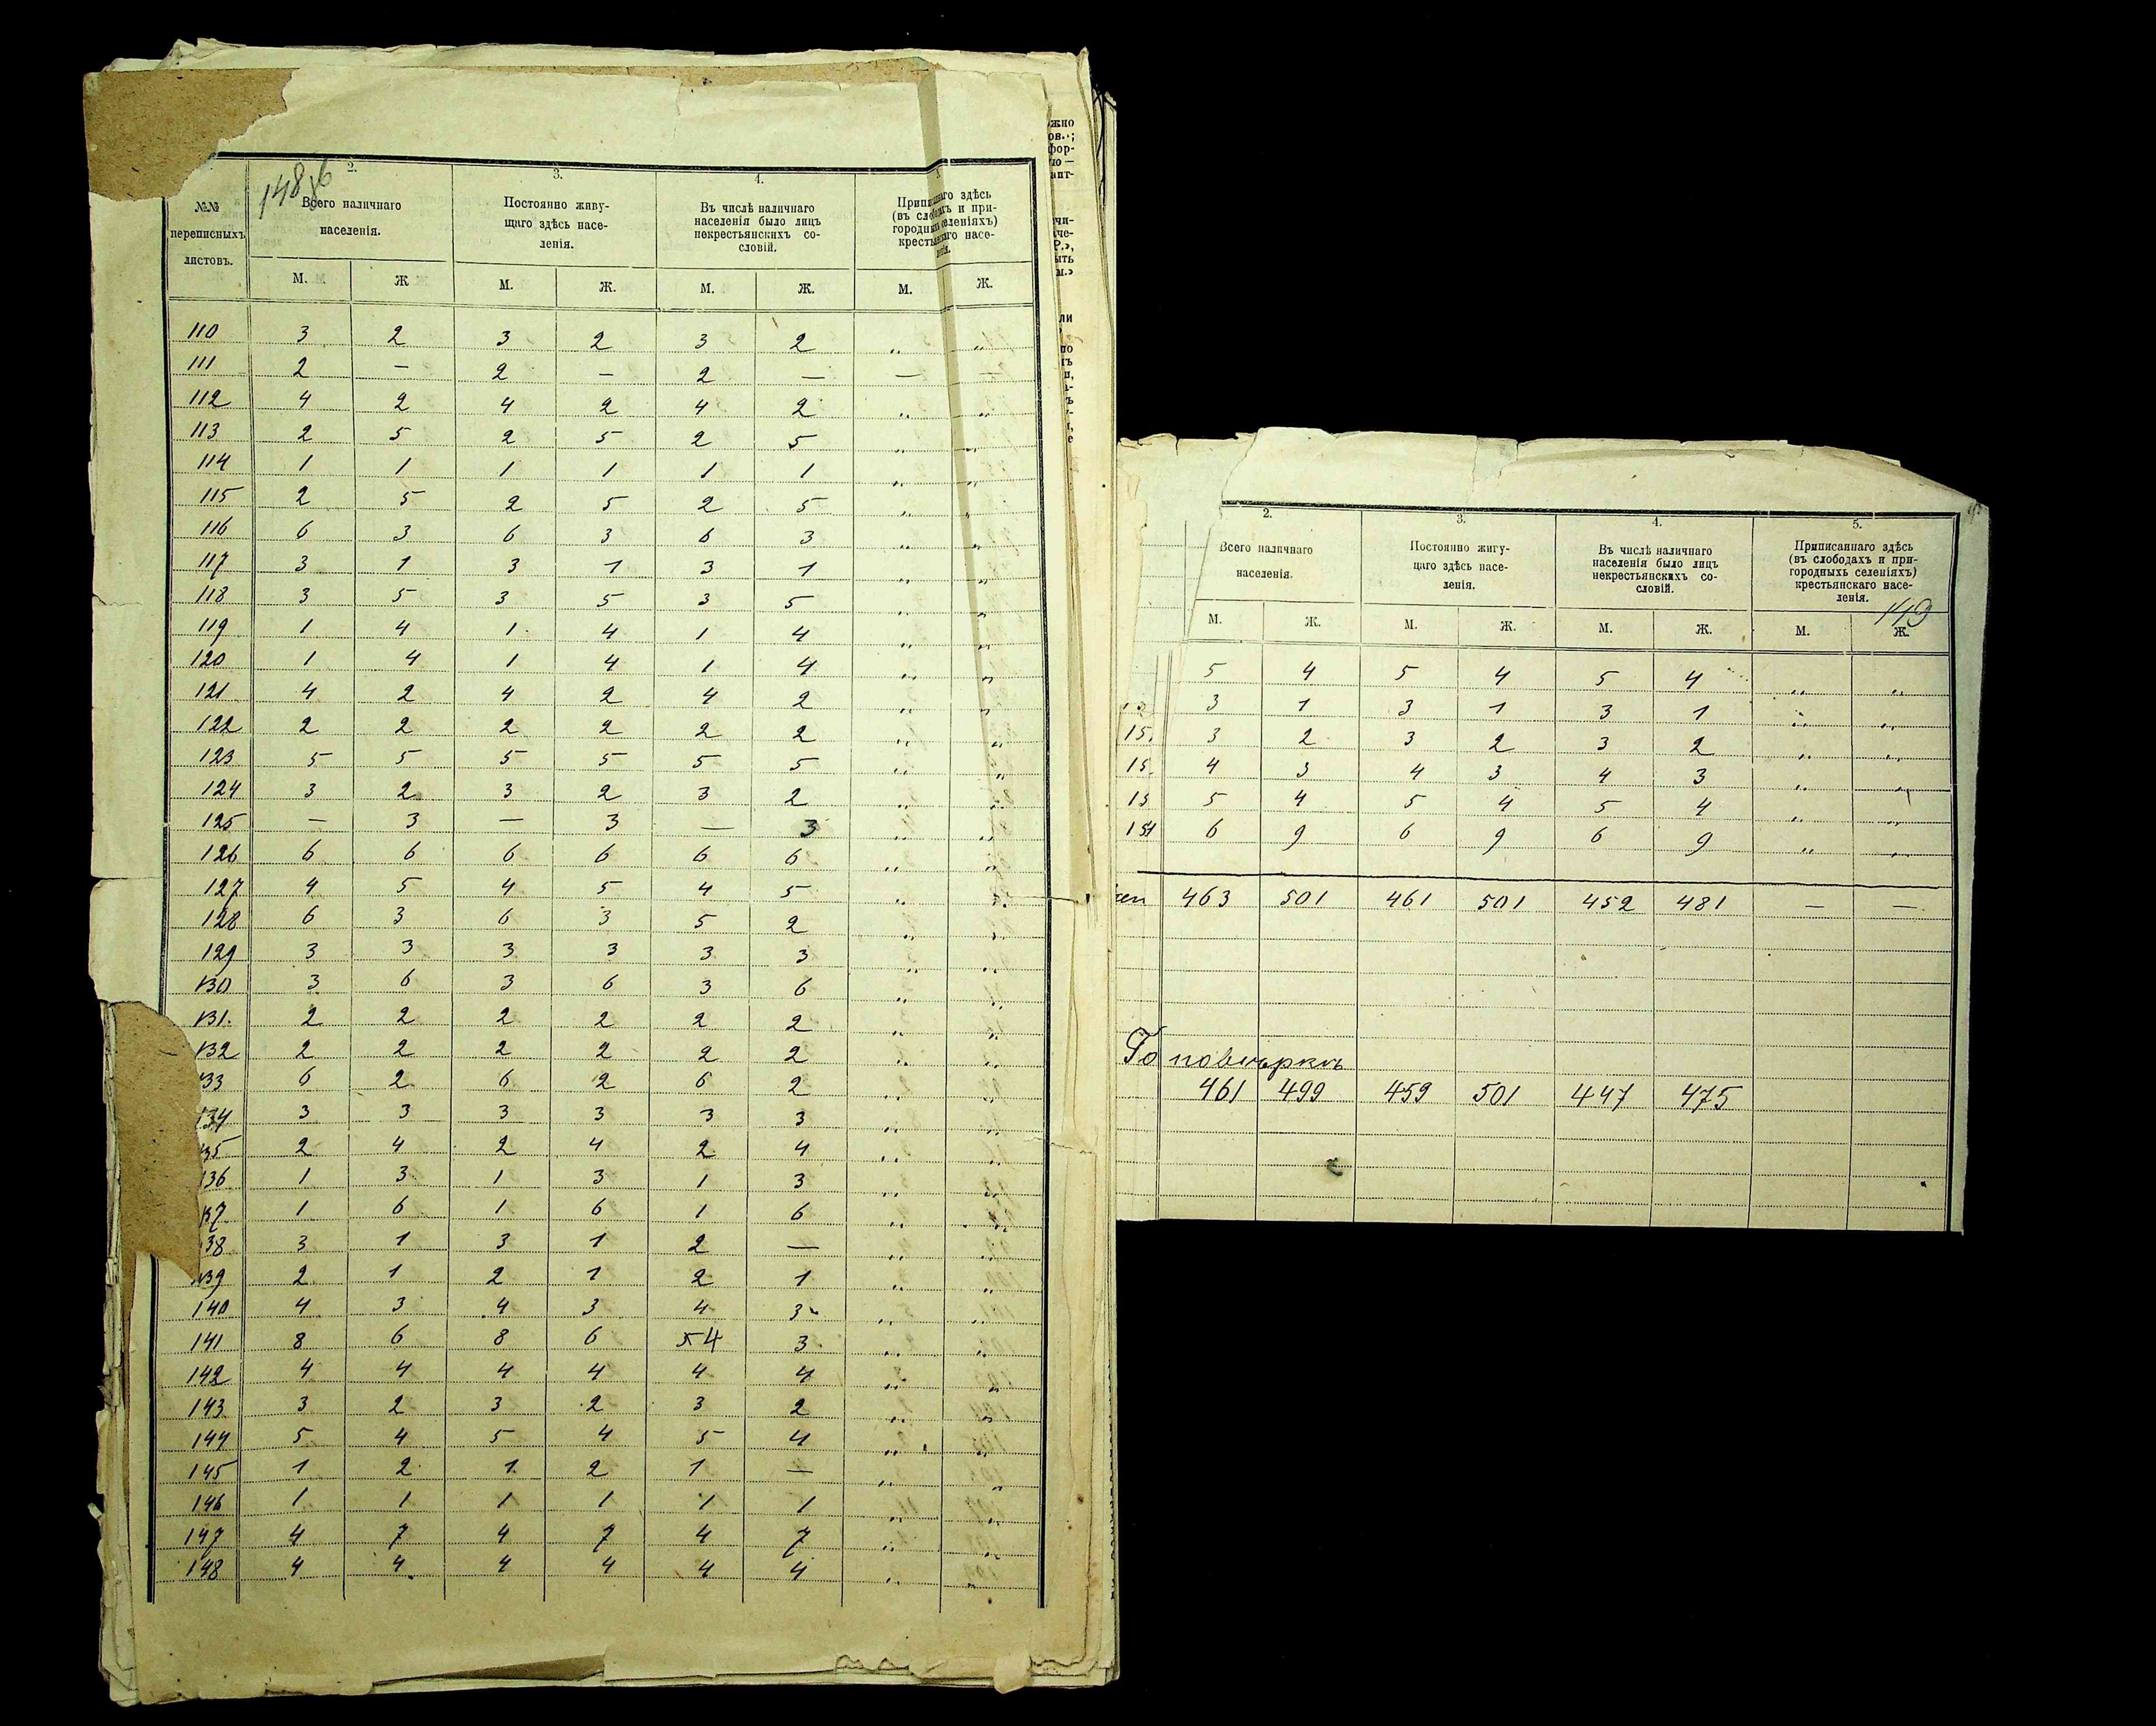 148 об
№№
переписныхъ
листовъ.
2.
Всего наличнаго
населенія.
3.
Постоянно живу-
щаго здѣсь насе-
ленія.
4.
Въ числѣ наличнаго
населенія было лицъ
некрестьянскихъ со-
словій.
здѣсь
(въ и при-
селеніяхъ)
насе-
М. Ж М. Ж. М. Ж. М. Ж.
110 3 2 3 2 3 2 „ „
111 2 — 2 — 2 — — —
112 4 2 4 2 4 2 „ „
113 2 5 2 5 2 5 „ „
114 1 1 1 1 1 1 „ „
115 2 5 2 5 2 5 „ „
116 6 3 6 3 6 3 „ „
117 3 1 3 1 3 1 „ „
118 3 5 3 5 3 5 „ „
119 1 4 1 4 1 4 „ „
120 1 4 1 4 1 4 „ „
121 4 2 4 2 4 2 „ „
122 2 2 2 2 2 2 „ „
123 5 5 5 5 5 5 „ „
124 3 2 3 2 3 2 „ „
125 — 3 — 3 — 3 „ „
126 6 6 6 6 6 6 „ „
127 4 5 4 5 4 5 „ „
128 6 3 6 3 5 2 „ „
129 3 3 3 3 3 3 „ „
130 3 6 3 6 3 6 „ „
131. 2 2 2 2 2 2 „ „
132 2 2 2 2 2 2 „ „
33 6 2 6 2 6 2 „ „
134 3 3 3 3 3 3 „ „
35 2 4 2 4 2 4 „ „
136 1 3 1 3 1 3 „ „
137 1 6 1 6 1 6 „ „
38 3 1 3 1 2 — „ „
139 2 1 2 1 2 1 „ „
140 4 3 4 3 4 3 „ „
141 8 6 8 6 5 4 3 „ „
142 4 4 4 4 4 4 „ „
143 3 2 3 2 3 2 „ „
144 5 4 5 4 5 4 „ „
145 1 2 1 2 1 — „ „
146 1 1 1 1 1 1 „ „
147 4 7 4 7 4 7 „ „
148 4 4 4 4 4 4 „ „
2.
Всего наличнаго
населенія.
3.
Постоянно живу-
щаго здѣсь насе-
ленія.
4.
Въ числѣ наличнаго
населенія было лицъ
некрестьянскихъ со-
словій.
5.
Приписаннаго здѣсь
(въ слободахъ и при-
городныхъ селеніяхъ)
крестьянскаго насе-
ленія.
149
М. Ж. М. Ж. М. Ж. М. Ж.
5 4 5 4 5 4 „ „
3 1 3 1 3 1 „ „
15 3 2 3 2 3 2 „ „
15 4 3 4 3 4 3 „ „
15 5 4 5 4 5 4 „ „
154 6 9 6 9 6 9 „ „
463 501 461 501 452 481 — —
По повѣркѣ
461 499 459 501 447 475